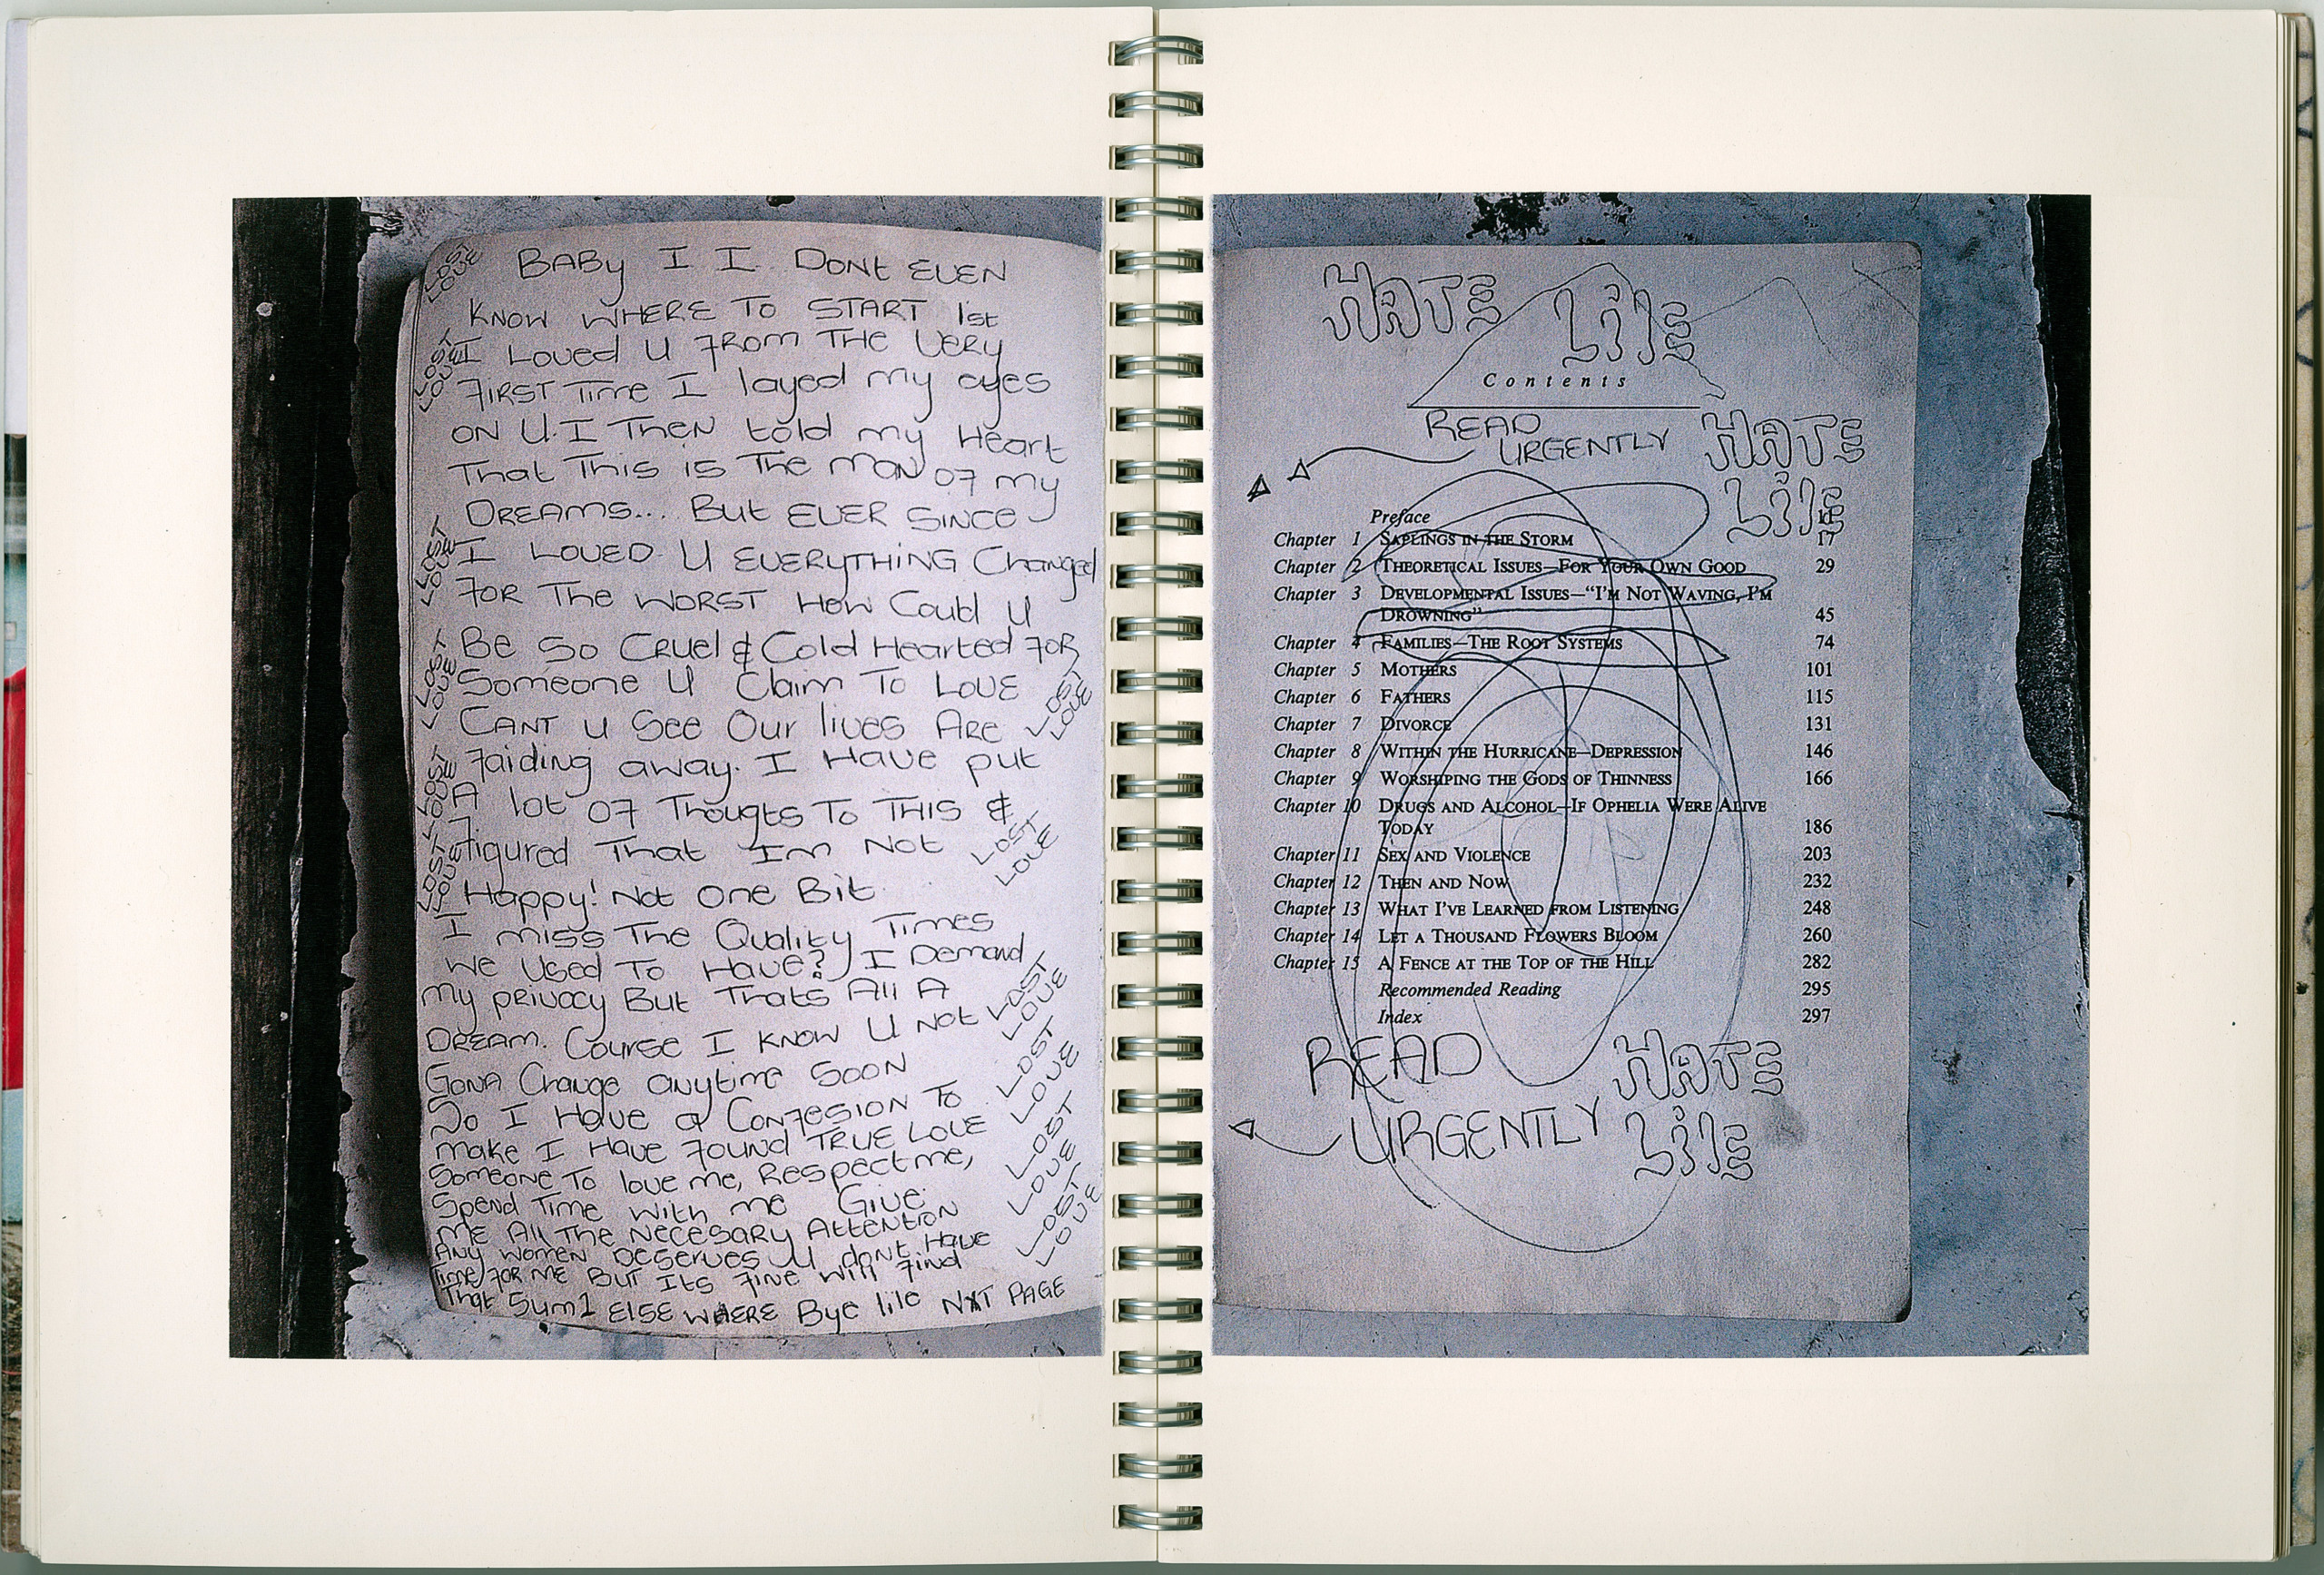 BABy I I DONt EVEN
KNOW WHERE TO START 1st
I LOVEd U FROM THE VERY
FIRST Time I layed my eyes
ON U. I THEN told my Heart
That This is The MAN OF my
DREAMS... But EVER SINCE
I LOVED U EVERYTHING Changed
FOR The WORST HOW Could U
Be So CRuel & Cold Hearted FOR
Someone U Claim To LOVE
CANT U See Our lives ARE
Faiding away. I HAVE put
A lot OF Thougts To THIS &
Figured That Im Not
Happy! Not One Bit
I miss The Quality Times
We Used To Have? I Demand
My privacy But Thats All A
DREAM. Course I KNOW U NOT
GONA Change anytime SOON
So I HAve a CONFESION TO
make I HAVE FOUND TRUE LOVE
Someone To love me, Respect me,
Spend Time with me Give
ME All THE NECESARy ATTENTION
ANy WOMEN DESERVES U dont HAVE
Time FOR ME BUT ITs FINE will Find
That Sum1 ELSE WHERE Bye lile NXT PAGE
LOST LOVE
LOST LOVE
LOST LOVE
LOST LOVE
LOST LOVE
LOST LOVE
LOST LOVE
LOST LOVE
LOST LOVE
LOST LOVE
LOST LOVE
LOST LOVE
HATE LilE
Contents
READ
URGENTLY
HATE
LilE
Preface 11
Chapter 1 SAPLINGS IN THE STORM 17
Chapter 2 THEORETICAL ISSUES—FOR YOUR OWN GOOD 29
Chapter 3 DEVELOPMENTAL ISSUES—“I'M NOT WAVING, I'M
DROWNING” 45
Chapter 4 FAMILIES—THE ROOT SYSTEMS 74
Chapter 5 MOTHERS 101
Chapter 6 FATHERS 115
Chapter 7 DIVORCE 131
Chapter 8 WITHIN THE HURRICANE—DEPRESSION 146
Chapter 9 WORSHIPING THE GODS OF THINNESS 166
Chapter 10 DRUGS AND ALCOHOL—IF OPHELIA WERE ALIVE
TODAY 186
Chapter 11 SEX AND VIOLENCE 203
Chapter 12 THEN AND NOW 232
Chapter 13 WHAT I'VE LEARNED FROM LISTENING 248
Chapter 14 LET A THOUSAND FLOWERS BLOOM 260
Chapter 15 A FENCE AT THE TOP OF THE HILL 282
Recommended Reading 295
Index 297
READ
URGENTLY
HATE
LilE